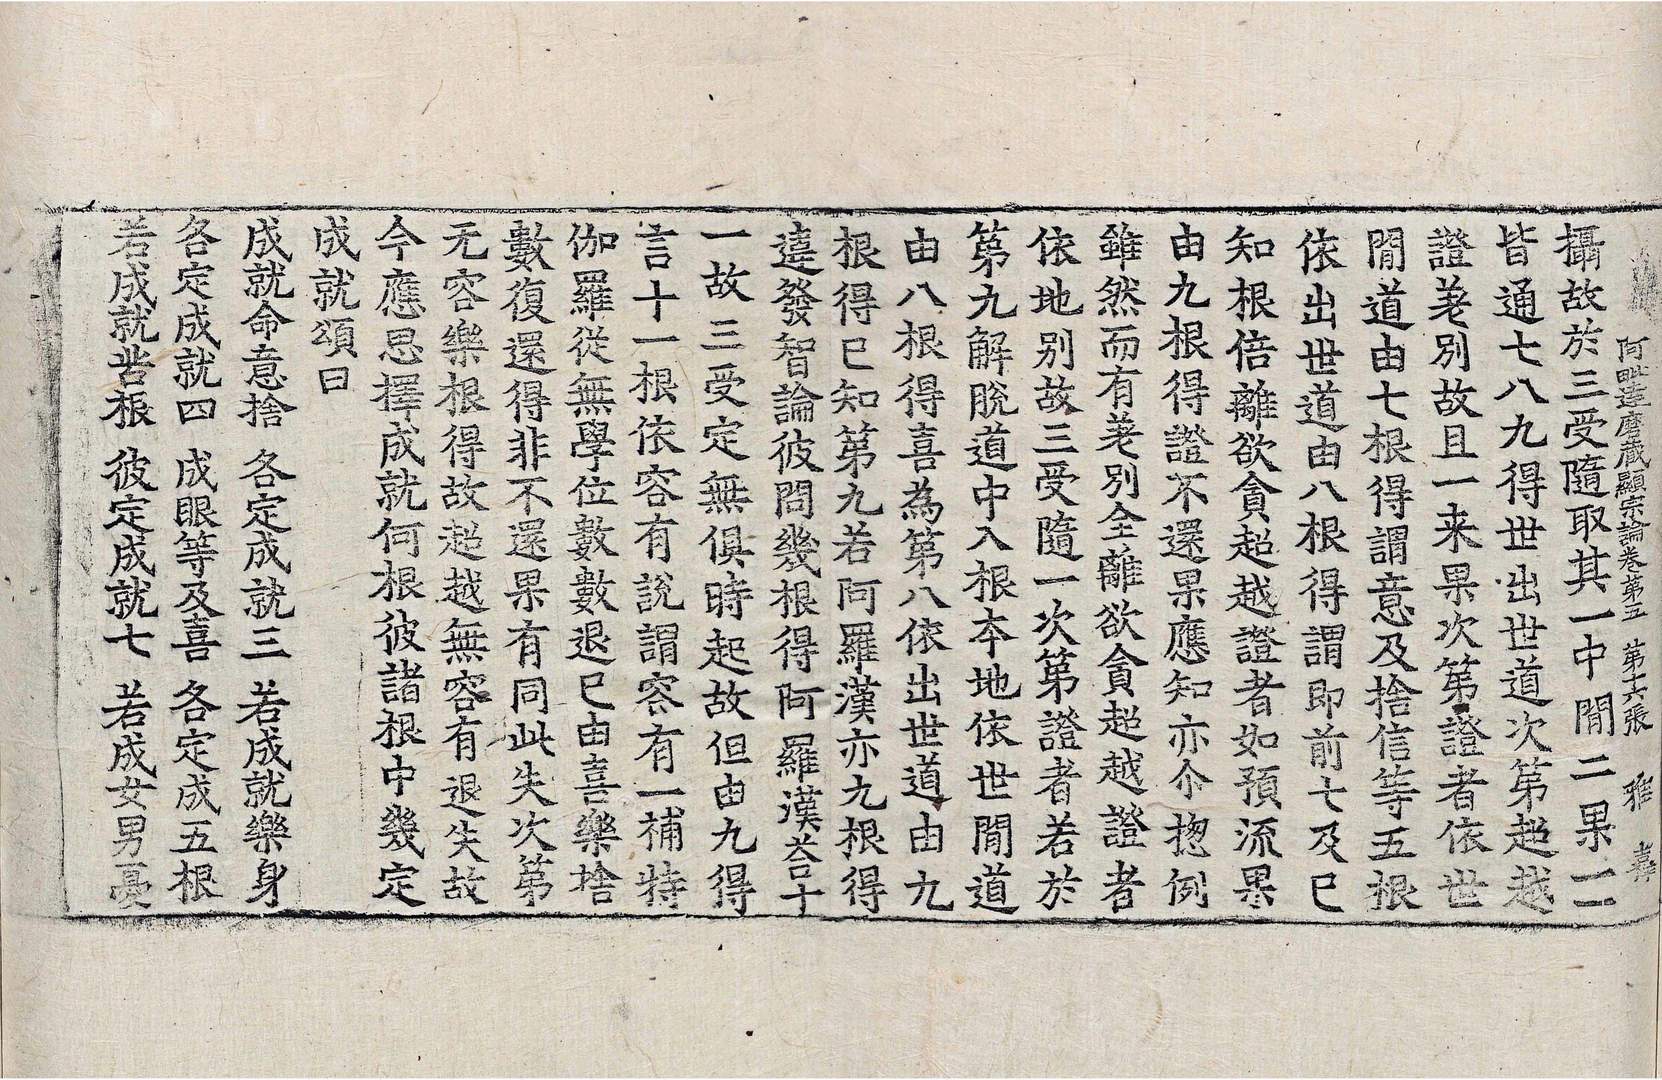 阿毗達磨藏顯宗論卷第五 第十六張 雅
攝故於三受隨取其一中閒二果一一
皆通七八九得世出世道次第超越
證差別故且一来果次第證者依世
閒道由七根得謂意及捨信等五根
依出世道由八根得謂即前七及已
知根倍離欲貪超越證者如預流果
由九根得證不還果應知亦尒揔例
雖然而有差別全離欲貪超越證者
依地別故三受隨一次第證者若於
第九解脫道中入根本地依世閒道
由八根得喜為第八依出世道由九
根得已知第九若阿羅漢亦九根得
違發智論彼問幾根得阿羅漢荅十
一故三受定無俱時起故但由九得
言十一根依容有說謂容有一補特
伽羅從無學位數數退已由喜樂捨
數復還得非不還果有同此失次第
无容樂根得故超越無容有退失故
今應思擇成就何根彼諸根中幾定
成就頌曰
成就命意捨 各定成就三 若成就樂身
各定成就四 成眼等及喜 各定成五根
若成就苦根 彼定成就七 若成女男憂